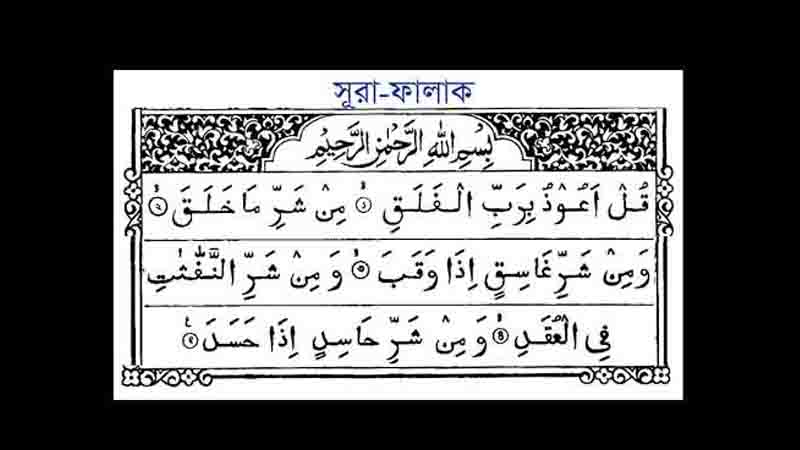 সূরা-ফালাক
بِسْمِ اللهِ الرَّحْمٰنِ الرَّحِيْمِ
قُلْ اَعُوْذُ بِرَبِّ الْفَلَقِ ۙ﴿۱﴾ مِنْ شَرِّ مَا خَلَقَ ۙ﴿۲﴾
وَ مِنْ شَرِّ غَاسِقٍ اِذَا وَقَبَ ۙ﴿۳﴾ وَ مِنْ شَرِّ النَّفّٰثٰتِ
فِي الْعُقَدِ ۙ﴿۴﴾ وَ مِنْ شَرِّ حَاسِدٍ اِذَا حَسَدَ ﴿۵﴾